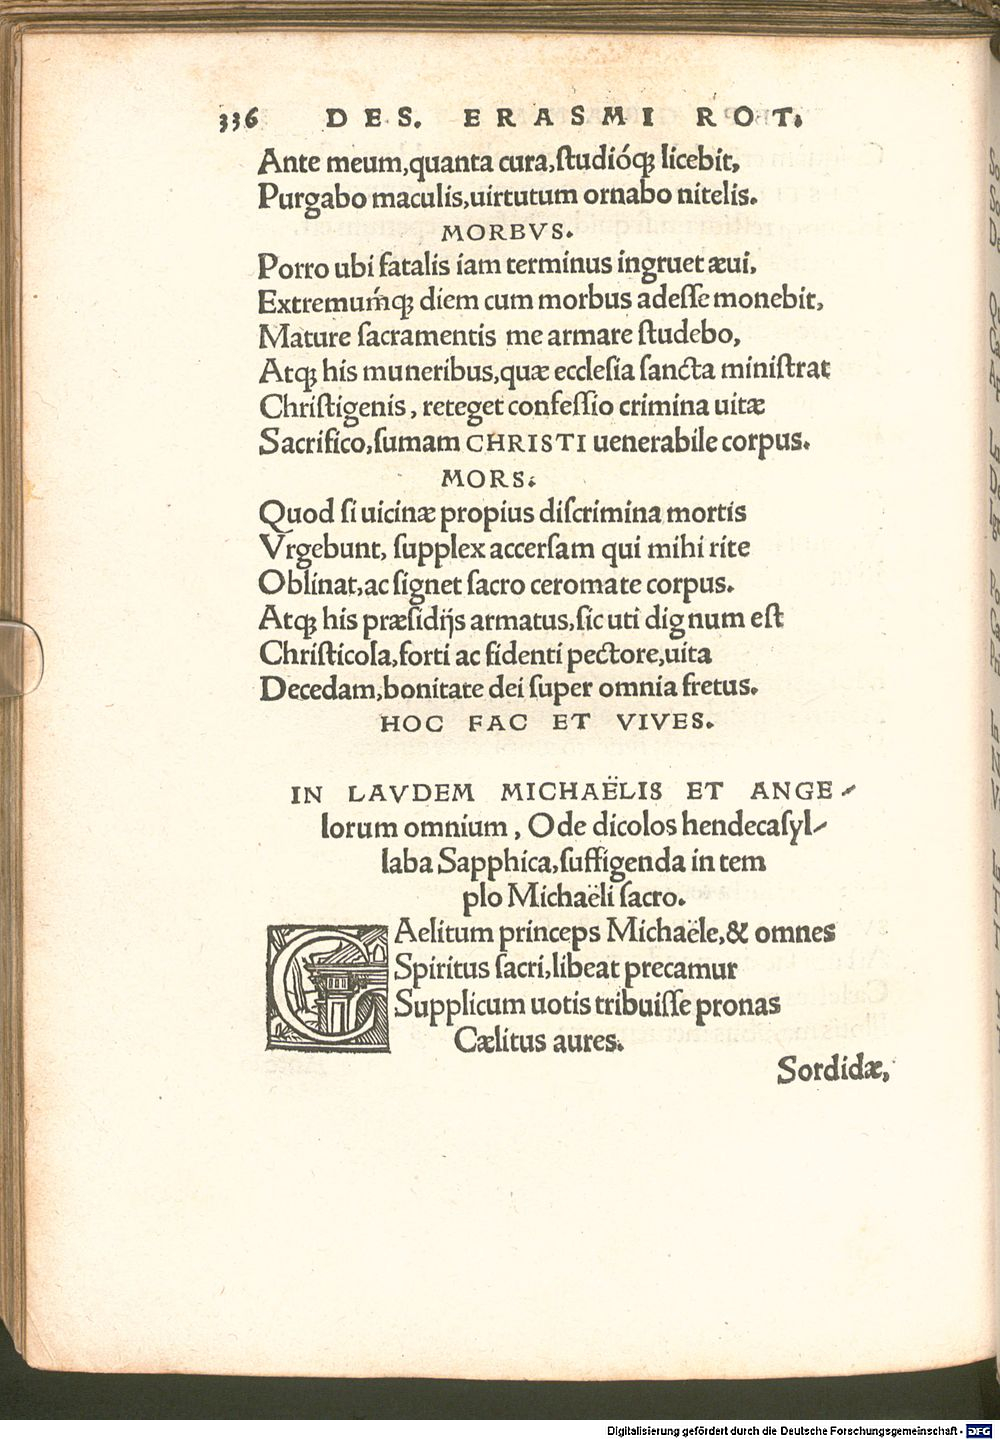 336 DES. ERASMI ROT.
Ante meum,quanta cura,ſtudióq; licebit,
Purgabo maculis,uirtutum ornabo nitelis.
MORBVS.
Porro ubi fatalis iam terminus ingruet æui,
Extremumq́; diem cum morbus adeſſe monebit,
Mature ſacramentis me armare ſtudebo,
Atq; his muneribus,quæ eccleſia ſancta miniſtrat
Chriſtigenis, reteget confeſſio crimina uitæ
Sacrifico,ſumam CHRISTI uenerabile corpus.
MORS.
Quod ſi uicinæ propius diſcrimina mortis
Vrgebunt, ſupplex accerſam qui mihi rite
Oblinat,ac ſignet ſacro ceromate corpus.
Atq; his præſidijs armatus,ſic uti dignum eſt
Chriſticola,forti ac fidenti pectore,uita
Decedam,bonitate dei ſuper omnia fretus.
HOC FAC ET VIVES.
IN LAVDEM MICHAËLIS ET ANGE-
lorum omnium, Ode dicolos hendecaſyl-
laba Sapphica,ſuffigenda in tem
plo Michaëli ſacro.
CAelitum princeps Michaële,& omnes
Spiritus ſacri,libeat precamur
Supplicum uotis tribuiſſe pronas
Cælitus aures.
Sordidæ,
Digitalisierung gefördert durch die Deutsche Forschungsgemeinschaft - DFG